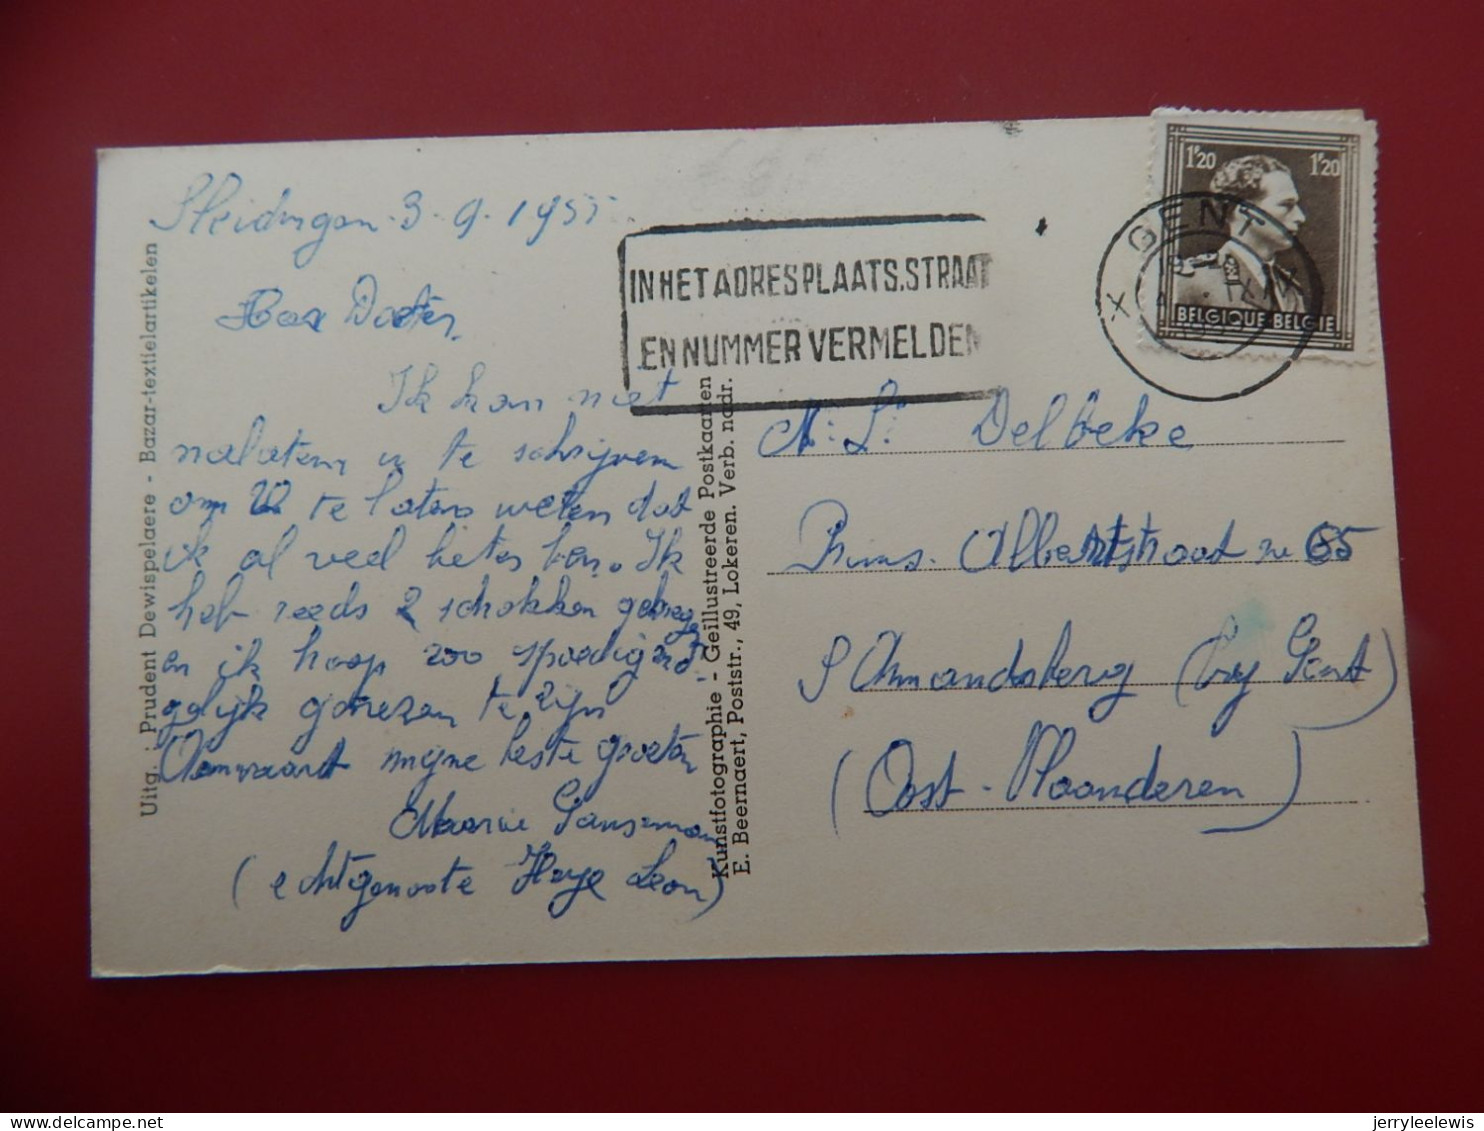 Sleidingen 3-9-1955
Heer Dokter,
Ik kan niet
nalaten u te schrijven
om U te laten weten dat
ik al veel beter ben. Ik
heb reeds 2 schokken gekregen
en ik hoop zoo spoedig
gelijk genezen te zijn
Aanvaardt mijne beste groeten
Marie
(echtgenoote Haye Leon)
Uitg.: Prudent Dewispelaere - Bazar-textielartikelen
Kunstfotographie - Geïllustreerde Postkaarten
E. Beernaert, Poststr., 49, Lokeren. Verb. nadr.
IN HET ADRES PLAATS.STRAAT
EN NUMMER VERMELDEN
1F20 1F20
BELGIQUE-BELGIE
GENT
X
Mr. Dr. Delbeke
Prins. Albertstraat nr 65
St Amandsberg (by Gent)
(Oost-Vlaanderen)
jerryleelewis